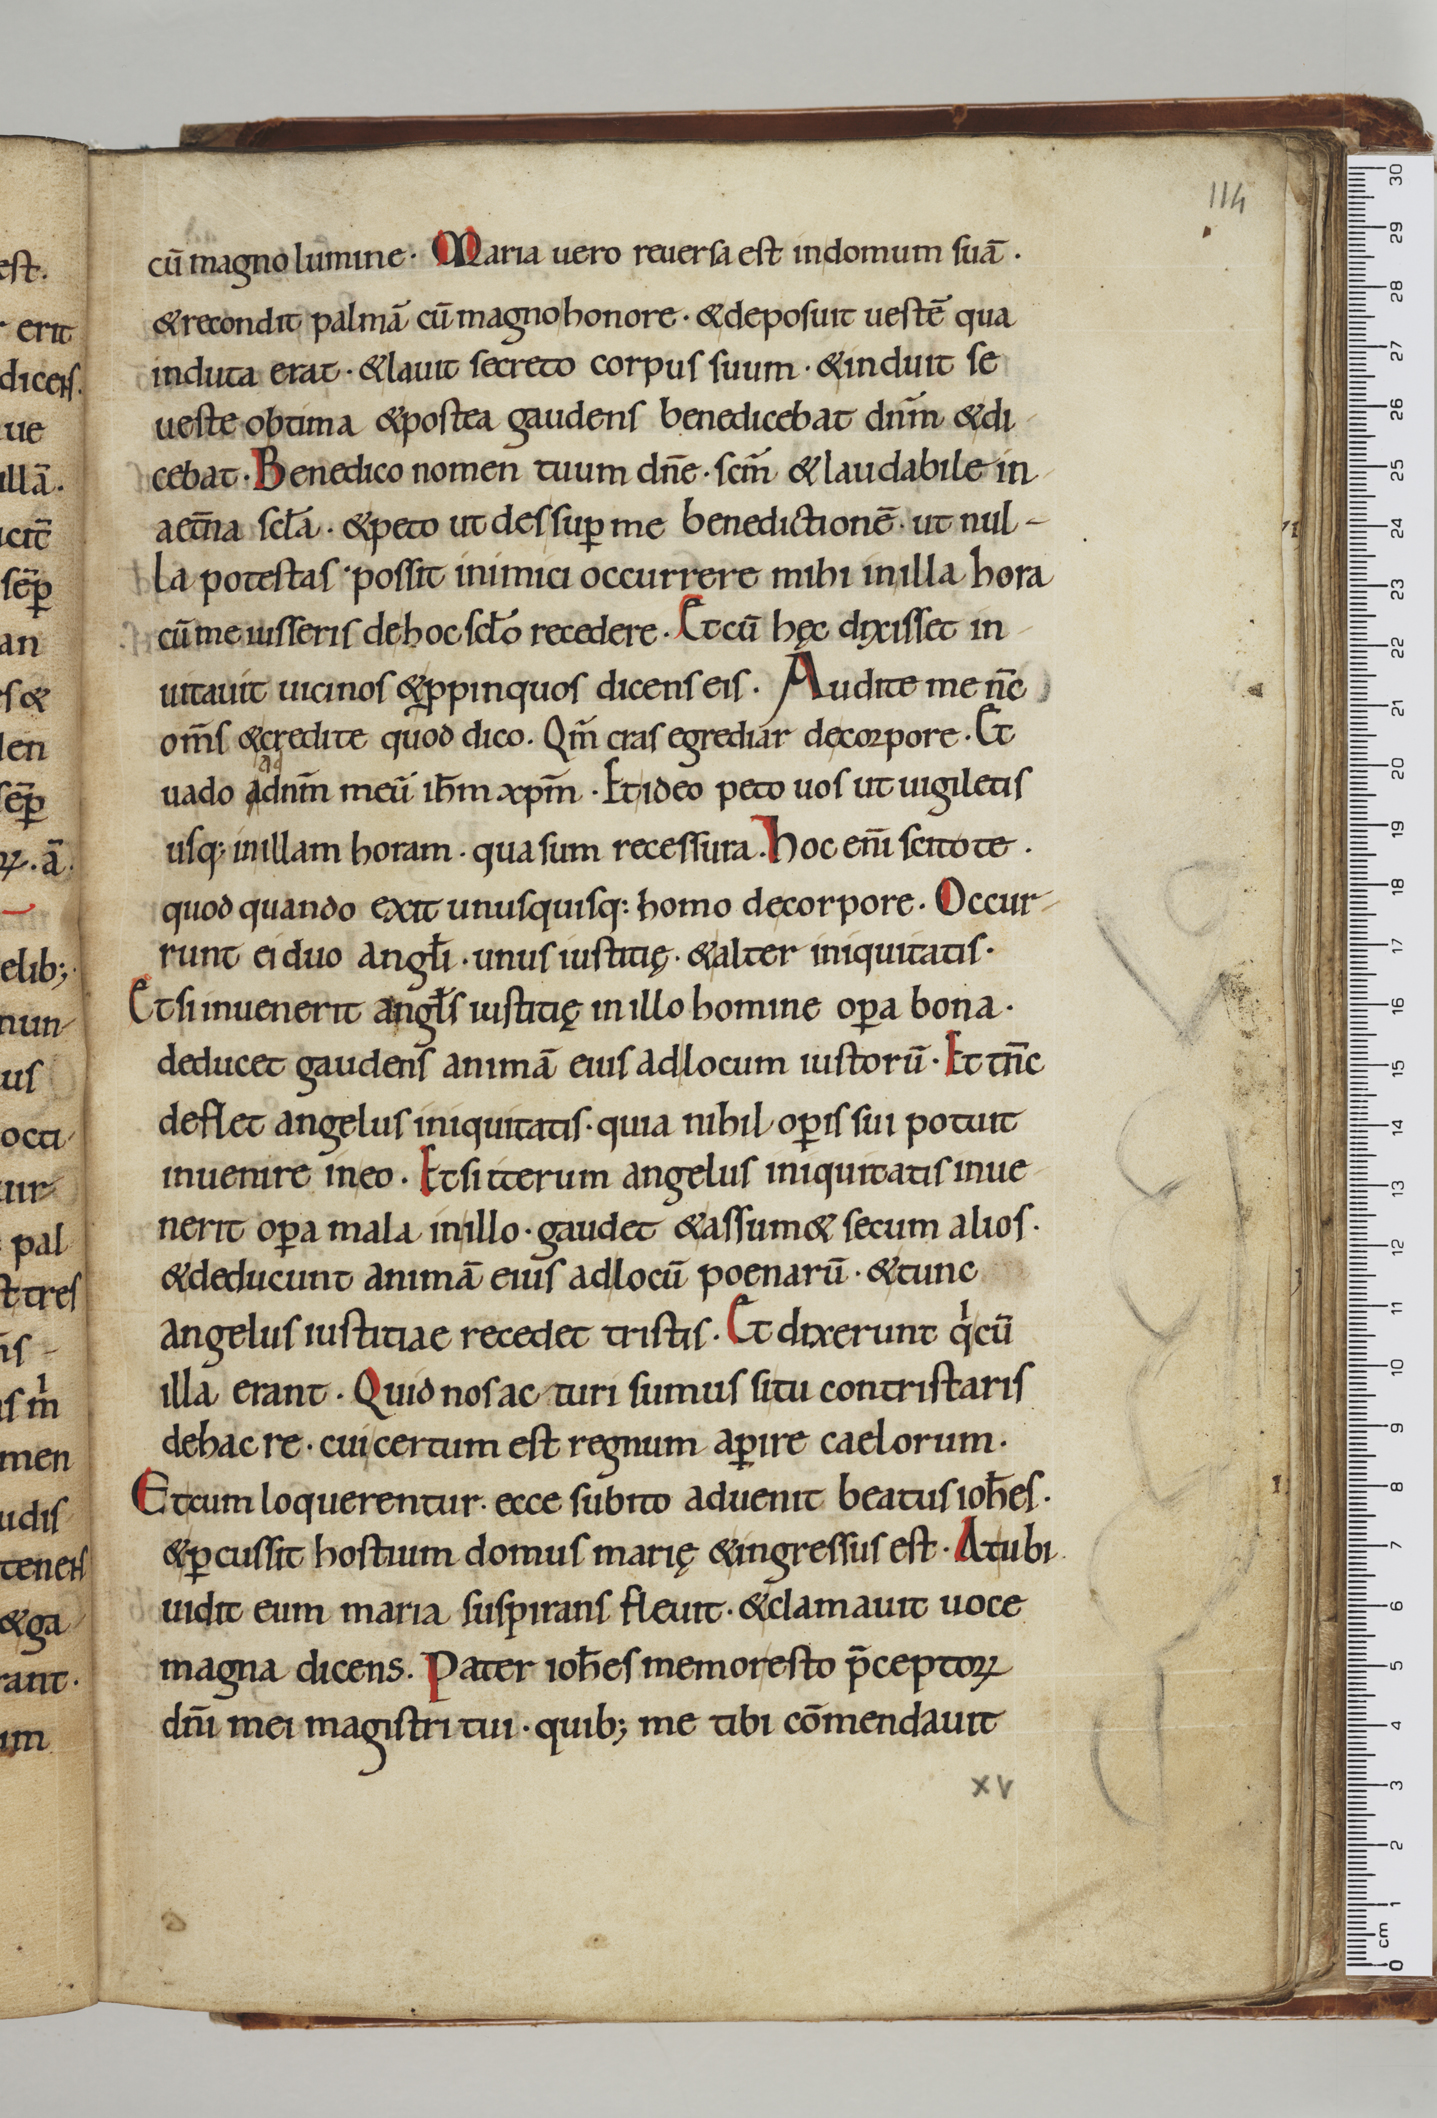 114
cū magno lumine · Maria uero reuersa est indomum suā ·
& recondit palmā cū magno honore · & deposuit uestē qua
induta erat · & lauit secreto corpus suum · & induit se
ueste obtima & postea gaudens benedicebat dn̄m & di
cebat · Benedico nomen tuum dn̄e · scm̄ & laudabile in
aet̄na scl̄a · & peto ut des sup̱ me benedictionē · ut nul-
la potestas possit inimici occurrere mihi inilla hora
cū me iusseris dehoc scl̄o recedere · Et cū hęc dixisset in
uitauit uicinos & ꝓpinquos dicens eis · Audite me nc̄
om̄s & credite quod dico · Qm̄ cras egrediar decorpore · Et
uado ad dn̄m meū ih̄m xpm̄ · Et ideo peto uos ut uigiletis
usq; inillam horam · qua sum recessura · Hoc eni̅ scitote ·
quod quando exit unusquisq: homo decorpore · Occur-
runt ei duo angl̄i · unus iustitię · & alter iniquitatis ·
Et si inuenerit angl̄s iustitię in illo homine op̱a bona ·
deducet gaudens animā eius ad locum iustorū · Et tn̄c
deflet angelus iniquitatis · quia nihil op̱is sui potuit
inuenire ineo · Et si iterum angelus iniquitatis inue
nerit op̱a mala inillo · gaudet & assum& secum alios ·
& deducunt animā eius ad locū poenarū · & tunc
angelus iustitiae recedet tristis · Et dixerunt qⁱ cū
illa erant · Quid nos ac turi sumus si tu contristaris
dehac re · cui certum est regnum ap̱ire caelorum ·
Et cum loquerentur · ecce subito aduenit beatus ioh̄es ·
& p̱cussit hostium domus marię & ingressus est · At ubi
uidit eum maria suspirans fleuit · & clamauit uoce
magna dicens. Pater ioh̄es memoresto p̄ceptoꝝ
dn̄i mei magistri tui · quib; me tibi cōmendauit
xv